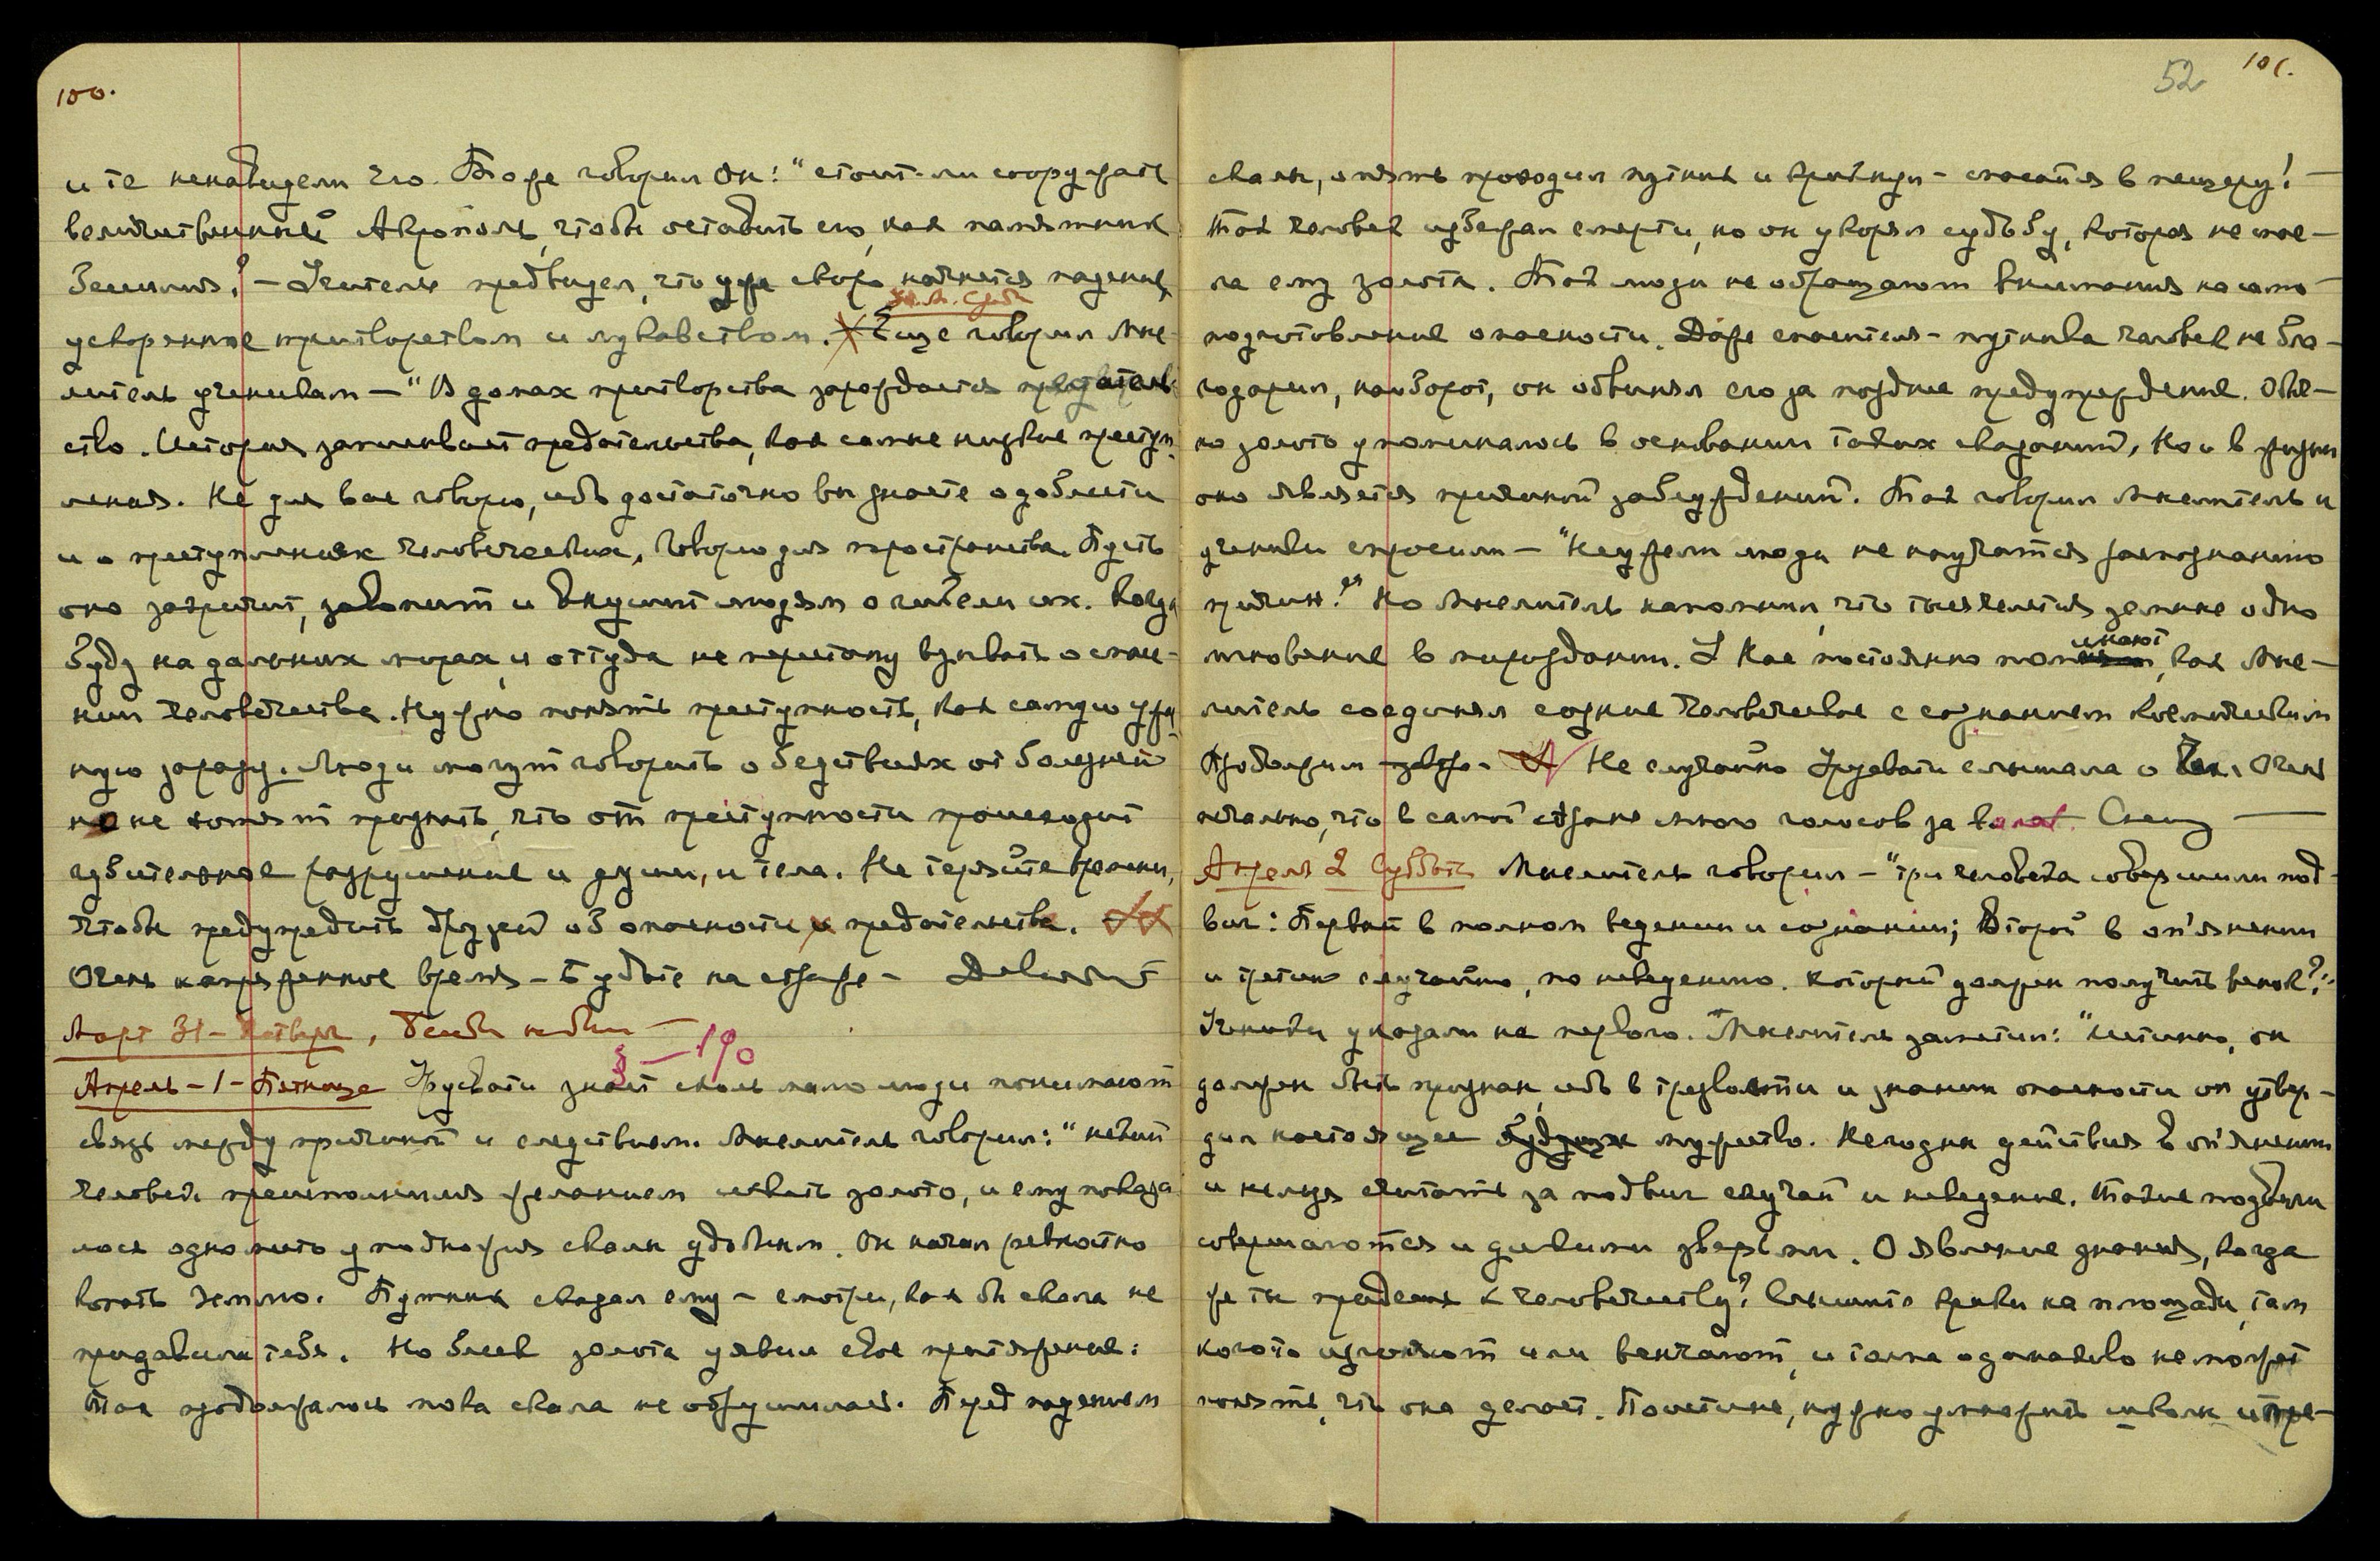 100.
и те ненавидели его. Также говорил Он: "стоит-ли сооружать
величественный Акрополь, чтобы оставить его, как памятник
бесчестия? - Учитель предвидел, что уже скоро начнется падение,
ускоренное притворством и лукавством. Еще говорил Мыс-
литель ученикам - "В домах притворства зарождается предатель-
ство. История запечатлевает предательства, как самые низкие преступ-
ления. Не для вас говорю, ибо достаточно вы знаете о доблести
и о преступлениях человеческих, Говорю для пространства. Пусть
оно закричит, завопит и внушит людям о гибели их. Когда
буду на дальних мирах, и оттуда не перестану взывать о спасе-
нии человечества. Нужно понять преступность, как самую ужас-
ную заразу. Люди могут говорить о бедствиях от болезней
но не хотят признать, что от преступности происходит
губительное разрушение и души, и тела. Не теряйте времени,
чтобы предупредить друзей об опасности предательства.
Очень напряженное время - Будьте на страже -
Март 31 - Четверг,
§ - 190
Апрель - 1 - Пятница Урусвати знает сколь мало люди понимают
связь между причиной и следствием. Мыслитель говорил: "некий
человек преисполнился желанием искать золото, и ему показа
лось одно место у подножия скалы удобным. Он начал ревностно
копать землю. Путник сказал ему - смотри, как бы скала не
придавила тебя. Но блеск золота уявил свое притяжение:
Так продолжалось пока скала не обрушилась. Перед падением
52 101.
скалы, опять проходил путник и крикнул - спасайся в пещеру!
Так человек избежал смерти, но он укорял судьбу, которая не посла-
ла ему золота. Так люди не обращают внимания на само
подготовление опасности. Даже спасителя - путника человек не бла-
годарил, наоборот, он обвинял его за позднее предупреждение. Обыч-
но золото упоминалось в основании таких сказаний, Но и в жизни
оно является причиной заблуждений. Так говорил Мыслитель и
ученики спросили - "Неужели люди не научатся распознанию
причин?" Но Мыслитель напомнил, что тысячелетия земные одно
мгновение в мироздании. У Нас постоянно поминают, как Мыс-
литель соединял сознание человеческое с сознанием космическим
Продолжим завтра. Не случайно Урусвати слышала о Чек. Очень
печально, что в самой стране много голосов за Спешу
Апрель 2 Суббота Мыслитель говорил - "три человека совершили под-
виг: Первый в полном ведении и сознании; Второй в опьянении
и третий случайно, по неведению. Который должен получить венок?"
Ученики указали на первого. Мыслитель заметил: "истинно, он
должен быть признан, ибо в трезвости и знании опасности он утвер-
дил настоящее мужество. Негодны действия в опьянении
и нельзя считать за подвиг случай и неведение. Такие подвиги
совершаются и дикими зверями. О явление знания, когда
же ты придешь к человечеству? Слышите крики на площади, там
кого-то изгоняют или венчают, и толпа одинаково не может
понять, что она делает. Поистине, нужно умножить школы и пре-